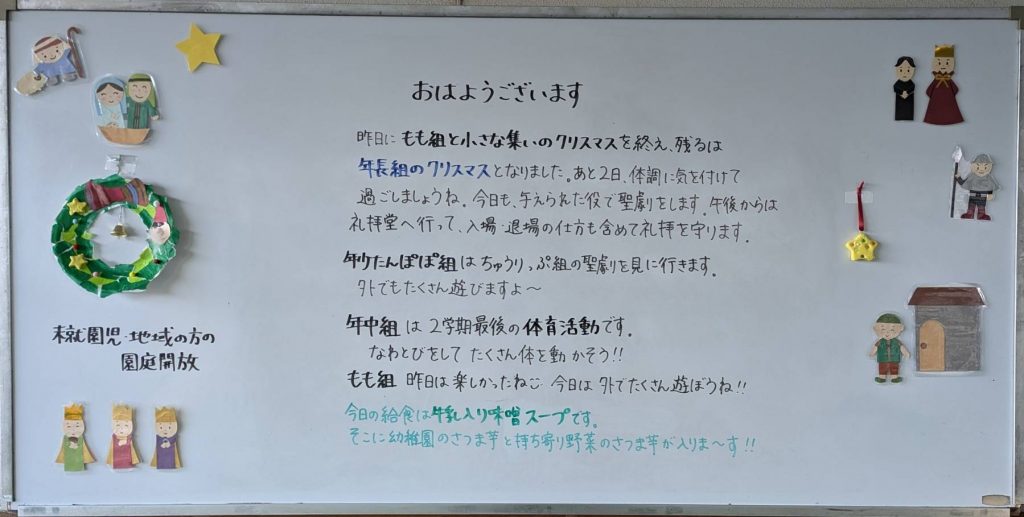 おはようございます
昨日に もも組と小さな集いのクリスマスを終え、残るは
年長組のクリスマスとなりました。あと2日、体調に気を付けて
過ごしましょうね。今日も、与えられた役で聖劇をします。午後からは
礼拝堂へ行って、入場・退場の仕方も含めて礼拝を守ります。
年少たんぽぽ組はちゅうりっぷ組の聖劇を見に行きます。
外でもたくさん遊びますよ～
年中組 は 2学期最後の体育活動です。
なわとびをして たくさん体を動かそう!!
もも組 昨日は楽しかったねこ 今日は外でたくさん遊ぼうね!!
今日の給食は牛乳入り味噌スープです。
そこに幼稚園のさつま芋と持ち寄り野菜のさつま芋が入りま～す!!
未就園児・地域の方の
園庭開放